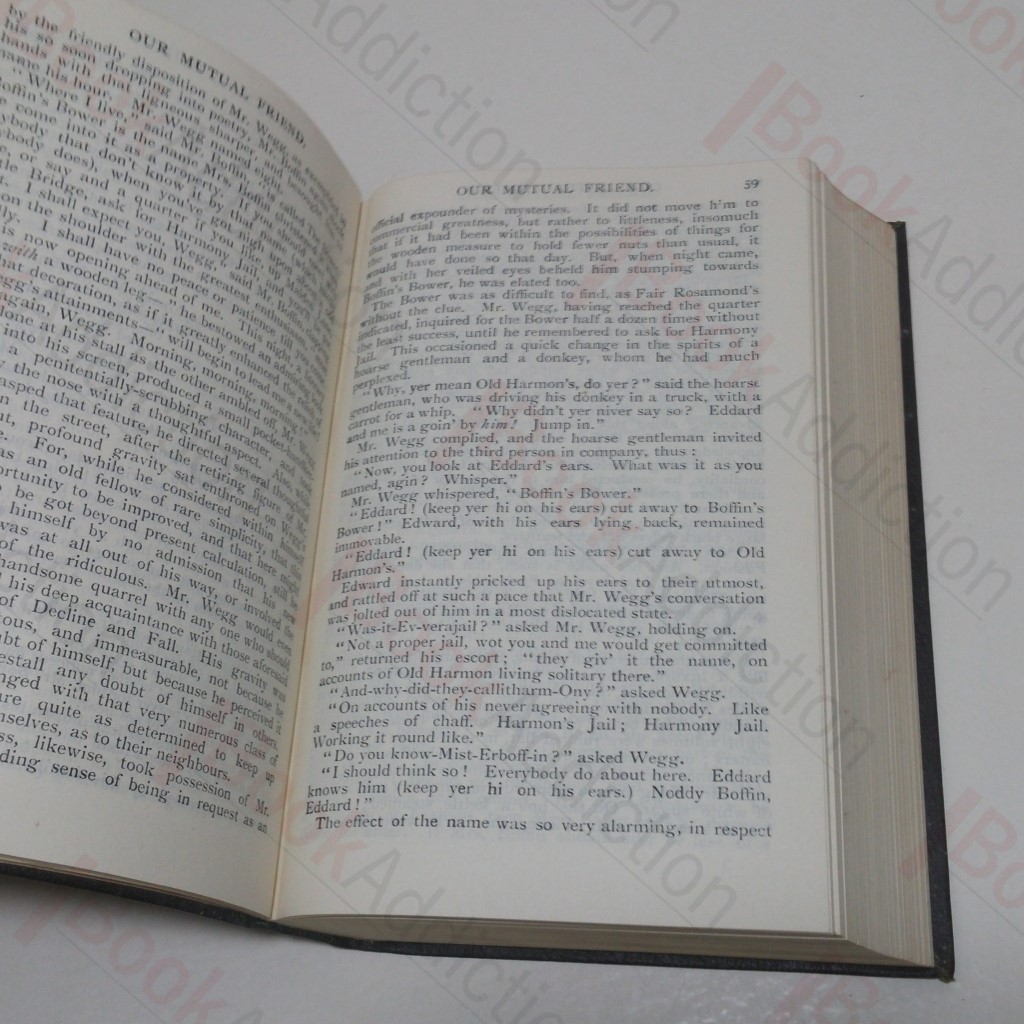 OUR MUTUAL FRIEND.
by the friendly disposition of Mr. Wegg, as
his so soon dropping into poetry, Mr. Boffin
hands with that ligneous sharper, and besought
name his hour. Mr. Wegg named eight.
"Where I live," said Mr. Boffin, "is called
Boffin's Bower is the name Mrs. Boffin
come into it as a property. If you should
body that don't know it by that name
ybody does), when you've got nigh upon
or say and a quarter if you like, up
tle Bridge, ask for Harmony Jail, and
t. I shall expect you, Wegg," said Mr.
on the shoulder with the greatest enthusiasm
ly. I shall have no peace or patience till you
is now opening ahead of me. This night, a
with a wooden leg—" he bestowed an admiring
that decoration, as if it greatly enhanced the
egg's attainments—"will begin to lead me a new
again, Wegg. Morning, morning, morning!"
lone at his stall as the other ambled off, Mr. Wegg
into his screen, produced a small pocket-
a penitentially-scrubbing character, and
y the nose with a thoughtful aspect. Also,
asped that feature, he directed several thoughtful
n the street, after the retiring figure of Mr.
ut, profound gravity sat enthroned on Wegg's
e. For, while he considered within himself
as an old fellow of rare simplicity, that this
ortunity to be improved, and that here might
be got beyond present calculation, still he
himself by no admission that his new
was at all out of his way, or involved the
of the ridiculous. Mr. Wegg would even
handsome quarrel with any one who should
his deep acquaintance with those aforesaid
of Decline and Fall. His gravity was
tous, and immeasurable, not because he
ubt of himself, but because he perceived it
estall any doubt of himself in others.
nged with that very numerous class of
are quite as determined to keep up
mselves, as to their neighbours.
ss, likewise, took possession of Mr.
ding sense of being in request as an
OUR MUTUAL FRIEND. 59
official expounder of mysteries. It did not move him to
commercial greatness, but rather to littleness, insomuch
that if it had been within the possibilities of things for
the wooden measure to hold fewer nuts than usual, it
would have done so that day. But, when night came,
and with her veiled eyes beheld him stumping towards
Boffin's Bower, he was elated too.
The Bower was as difficult to find, as Fair Rosamond's
without the clue. Mr. Wegg, having reached the quarter
indicated, inquired for the Bower half a dozen times without
the least success, until he remembered to ask for Harmony
Jail. This occasioned a quick change in the spirits of a
hoarse gentleman and a donkey, whom he had much
perplexed.
"Why, yer mean Old Harmon's, do yer?" said the hoarse
gentleman, who was driving his donkey in a truck, with a
carrot for a whip. "Why didn't yer niver say so? Eddard
and me is a goin' by him! Jump in."
Mr. Wegg complied, and the hoarse gentleman invited
his attention to the third person in company, thus:
"Now, you look at Eddard's ears. What was it as you
named, agin? Whisper."
Mr. Wegg whispered, "Boffin's Bower."
"Eddard! (keep yer hi on his ears) cut away to Boffin's
Bower!" Edward, with his ears lying back, remained
immovable.
"Eddard! (keep yer hi on his ears) cut away to Old
Harmon's."
Edward instantly pricked up his ears to their utmost,
and rattled off at such a pace that Mr. Wegg's conversation
was jolted out of him in a most dislocated state.
"Was-it-Ev-verajail?" asked Mr. Wegg, holding on.
"Not a proper jail, wot you and me would get committed
to," returned his escort; "they giv' it the name, on
accounts of Old Harmon living solitary there."
"And-why-did-they-callitharm-Ony?" asked Wegg.
"On accounts of his never agreeing with nobody. Like
a speeches of chaff. Harmon's Jail; Harmony Jail.
Working it round like."
"Do you know-Mist-Erboff-in?" asked Wegg.
"I should think so! Everybody do about here. Eddard
knows him (keep yer hi on his ears.) Noddy Boffin,
Eddard!"
The effect of the name was so very alarming, in respect
BookAddiction
BookAddiction
BookAddiction
BookAddiction